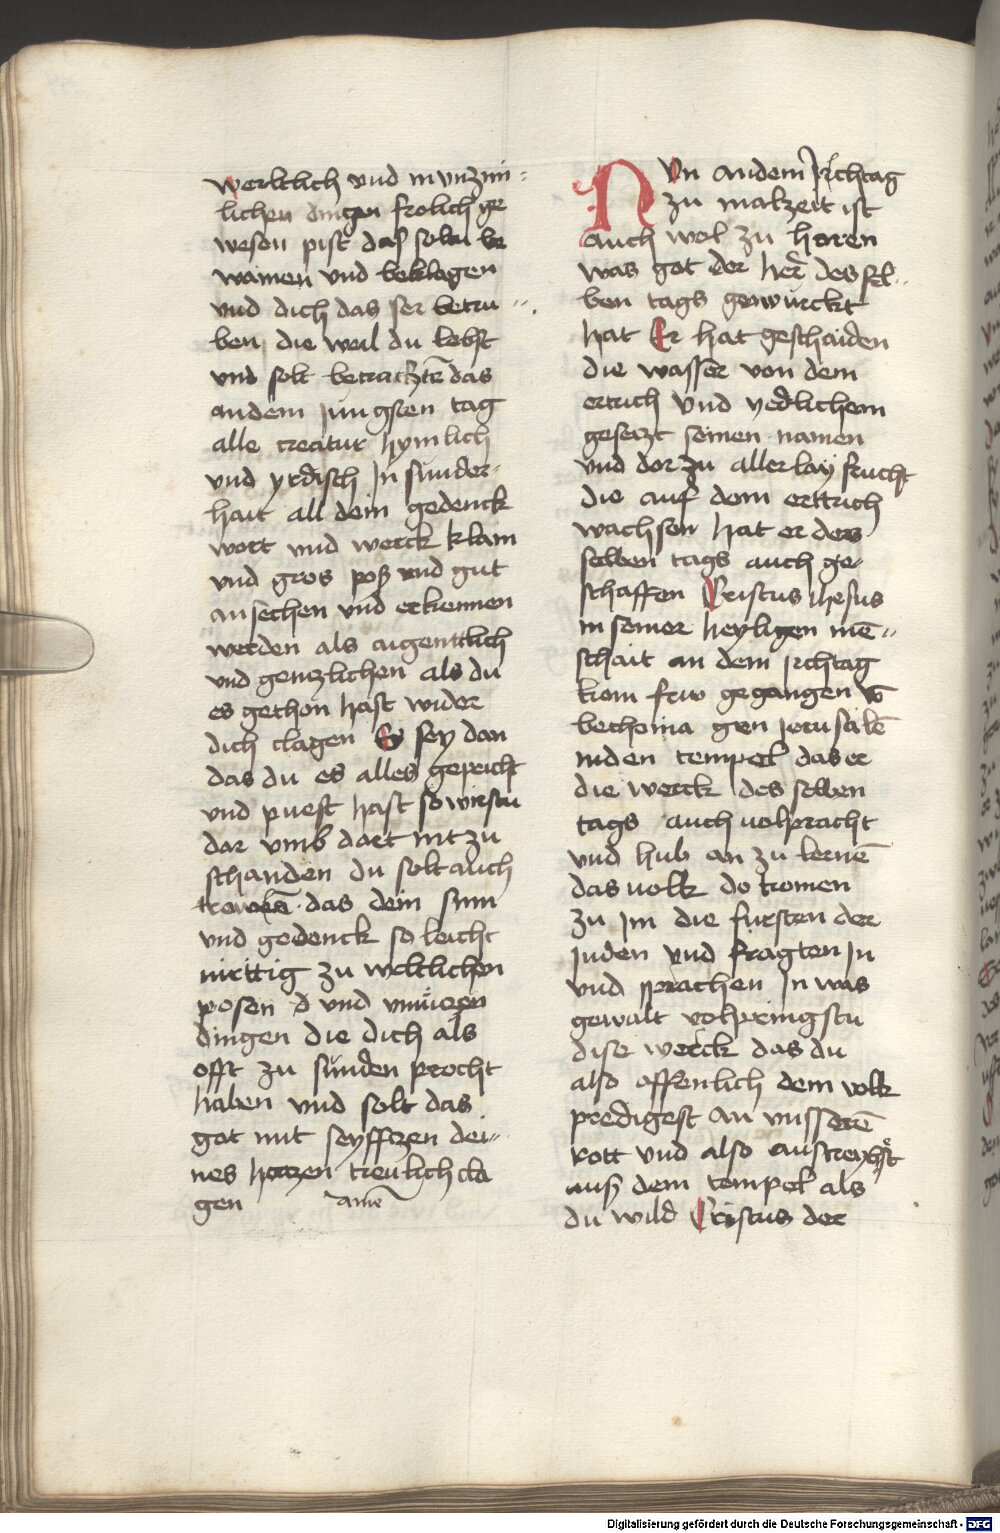 werltlich vnd in vnzim
lichen dingen frolich ge
wesen pist das soltu be
wainen vnd beklagen
vnd dich das ser betru
ben die weil du lebst
vnd solt betrachtē das
an dem jungsten tag
alle creatur hymlich
vnd yrdisch jn sunder
hait all dein gedenck
wort vnd werck klain
vnd gros poß vnd gut
an sechen vnd erkennen
werden als aigentlich
vnd gentzlichen als du
es gethon hast wider
dich clagen Es sey dan
das du es alles gepeicht
vnd puest hast so wirstu
dar vmb dort nit zu
schanden du solt auch
das dein sinn
vnd gedenck so leicht
vertig zu weltlichen
posen vnd vnnüczen
dingen die dich als
offt zu sünden procht
haben vnd solt das
got mit seyfftzen dei
nes hertzen treulich cla
gen amē
NVn an dem Jrchtag
zu malzeit ist
auch wol zu horen
was got der her des sel
ben tags gewurckt
hat Er hat geschaiden
die wasser von dem
ertrich vnd yedlichem
gesetzt seinen namen
vnd dor zu aller lay frucht
die auf dem erttrich
wachsen hat er des
selben tags auch ge
schaffen Cristus jhesus
in seiner heyligen mē
schait an dem jrchtag
kom fruo gegangen vō
bethania gen jerusalē
in den tempel das er
die werck des selben
tags auch volpracht
vnd hub an zu lernē
das volk do komen
zu jm die fursten der
juden vnd fragten jn
vnd sprachen jn was
gewalt volpringstu
dise werck das du
also offenlich dem volk
predigest an vnsserē
rott vnd also austreybst
auß dem tempel als
du wild Cristus der
Digitalisierung gefördert durch die Deutsche Forschungsgemeinschaft - DFG